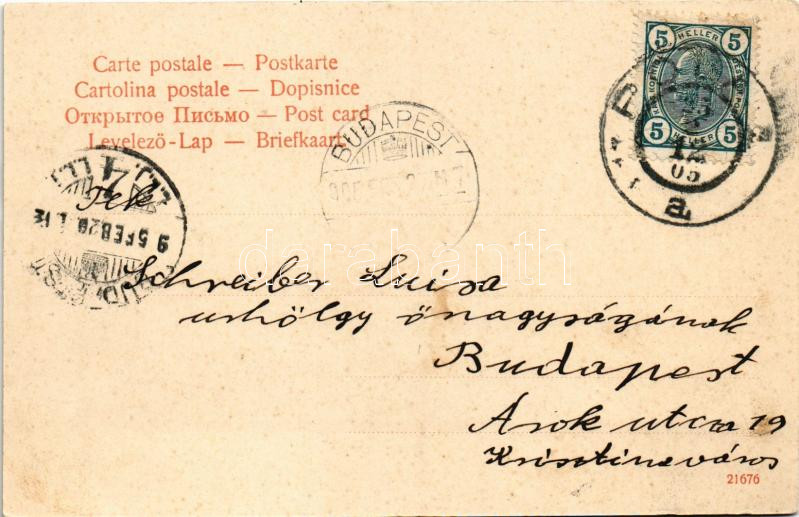 Carte postale — Postkarte
Cartolina postale — Dopisnice
Открытое Письмо — Post card
Levelező-Lap — Briefkaart
5 HELLER 5
5 HELLER 5
BUDAPEST
05
a
Tek
Schreiber Luisa
urhölgy önagyságának
Budapest
Árok utcza 19
Krisztinaváros
21676
darabanth